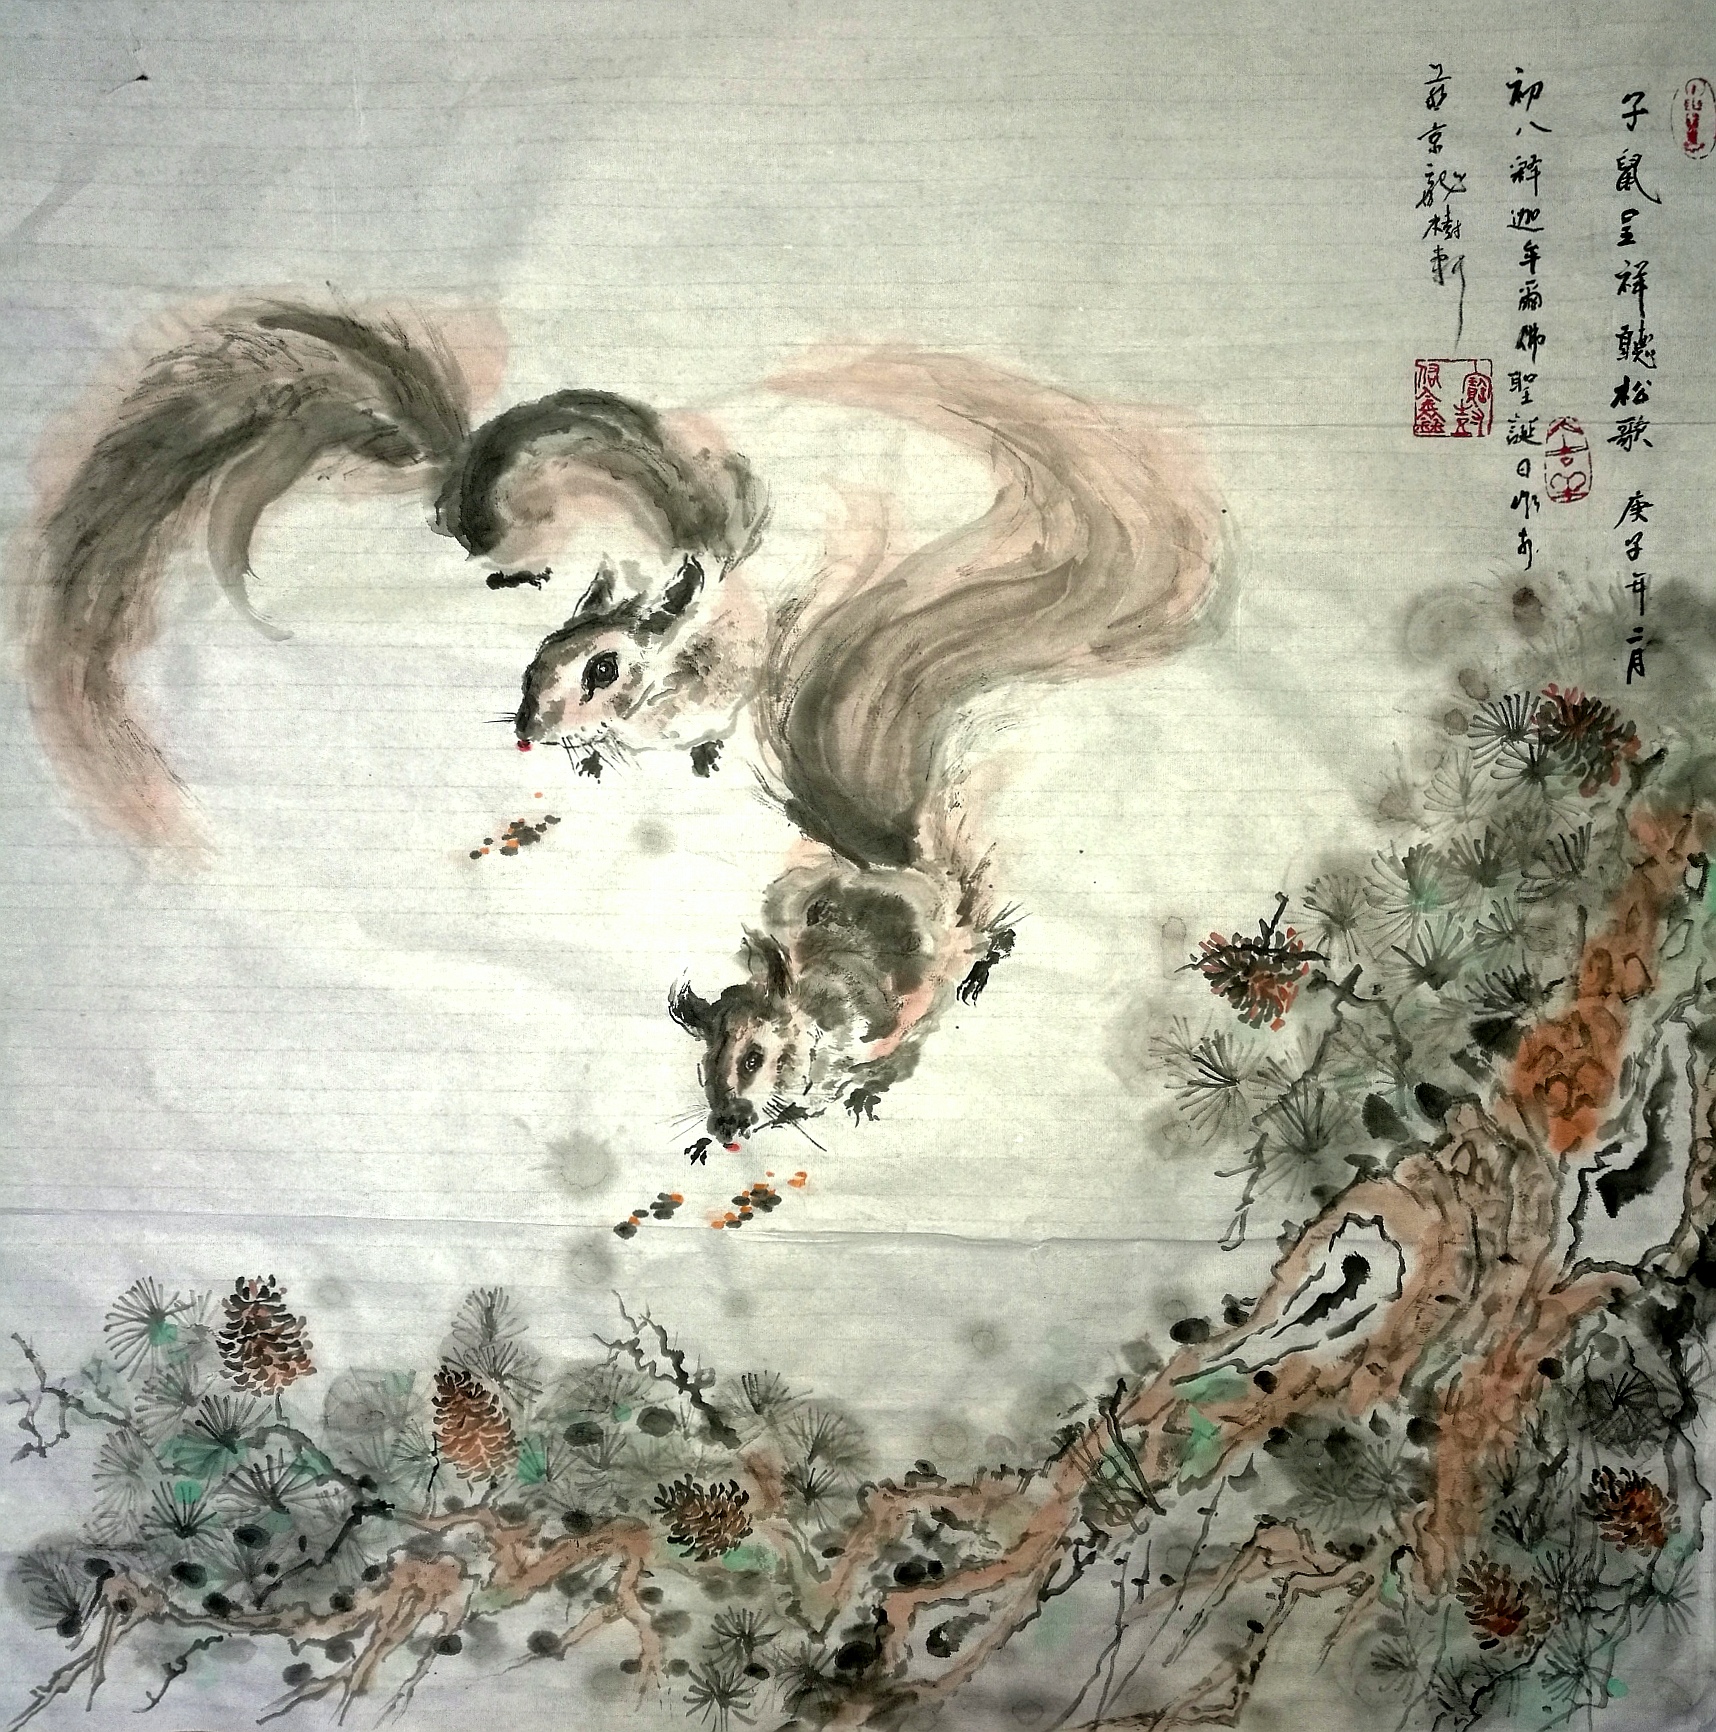 子鼠呈祥聽松歌 庚子年二月
初八釋迦牟爾佛聖誕日作於
燕京龍樹軒
大吉